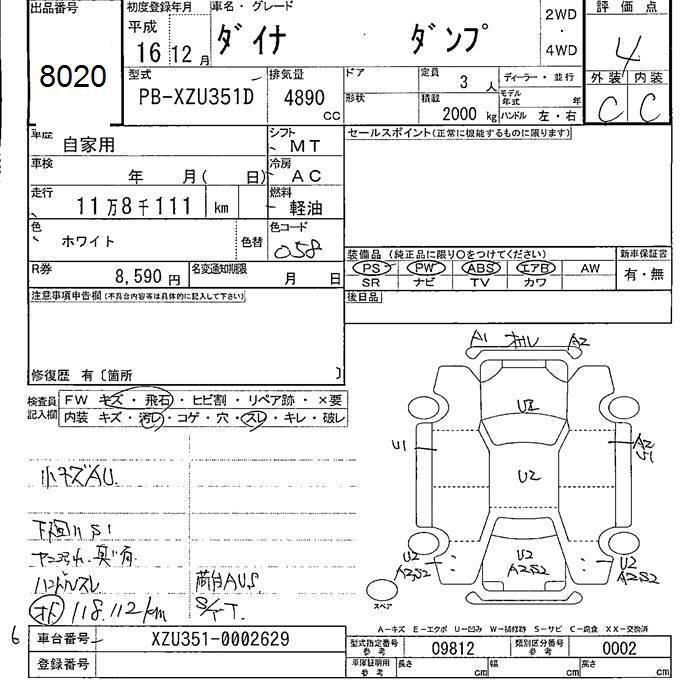 出品番号
8020
初度登録年月
平成
16 12 月
車名・グレード
ダイナ ダンプ
2WD
・
4WD
評価点
4
外装 内装
C C
型式
PB-XZU351D
排気量
4890
cc
ドア
形状
定員
3 人
積載
2000 kg
ディーラー・並行
モデル年式 年
ハンドル 左・右
車歴
自家用
シフト
MT
車検
年 月( 日)
冷房
AC
走行
11万8千111 km
燃料
軽油
色
ホワイト
色替
色コード
058
R券
8,590 円
名変通知期限
月 日
セールスポイント(正常に機能するものに限ります)
装備品 (純正品に限り○をつけてください)
PS PW ABS エアB AW
SR ナビ TV カワ
新車保証書
有・無
後日品
注意事項申告欄(不具合内容等は具体的に記入して下さい)
修復歴 有〔箇所 〕
検査員
記入欄
FW キズ・飛石・ヒビ割・リペア跡・×要
内装 キズ・汚レ・コゲ・穴・スレ・キレ・破レ
小キズAU
下回リS1
ハンドルスレ
荷台AUS
118.112km
S/T T.
A1 A2
U1
U1
U2
A2
U1
U2
A2S2
U2
A2S2
U2
A2S2
スペア
A-キズ E-エクボ U-凹み W-補修跡 S-サビ C-腐食 XX-交換済
6
車台番号
XZU351-0002629
登録番号
型式指定番号
参考
09812
類別区分番号
参考
0002
車庫証明用
参考
長さ cm
幅 cm
高さ cm